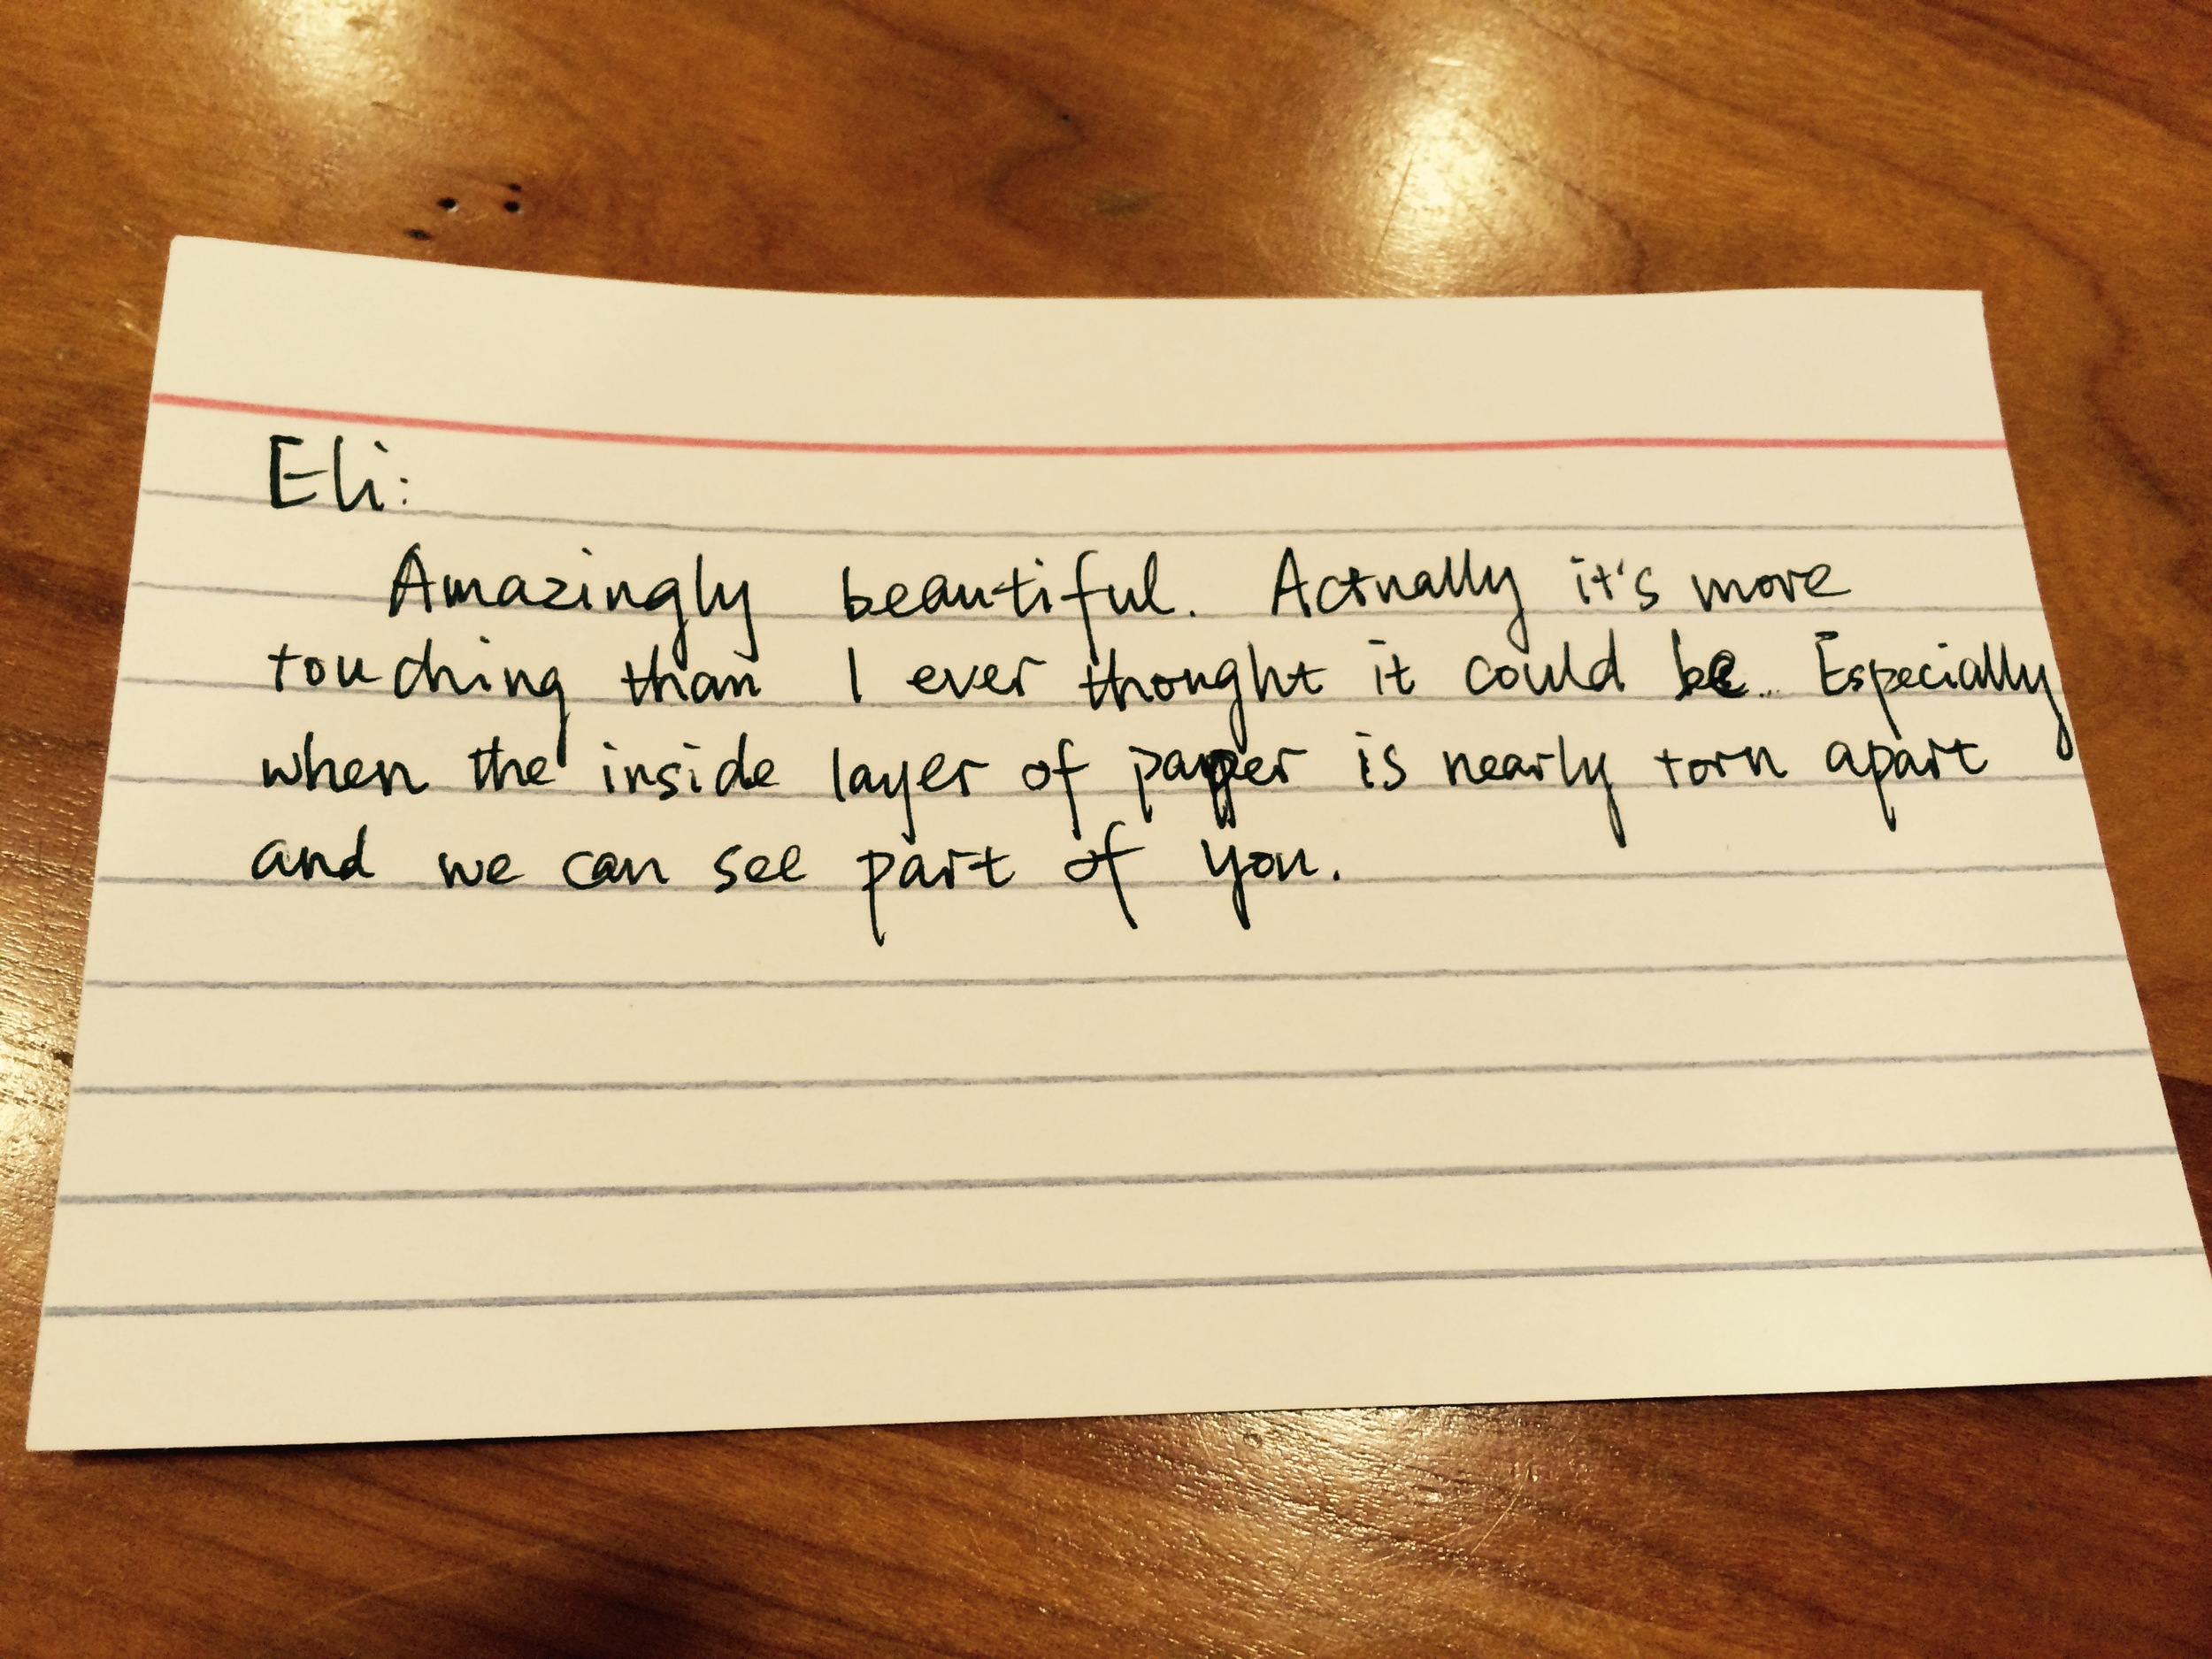 Eli:
Amazingly beautiful. Actually it's more
touching than I ever thought it could be.. Especially
when the inside layer of paper is nearly torn apart
and we can see part of you.